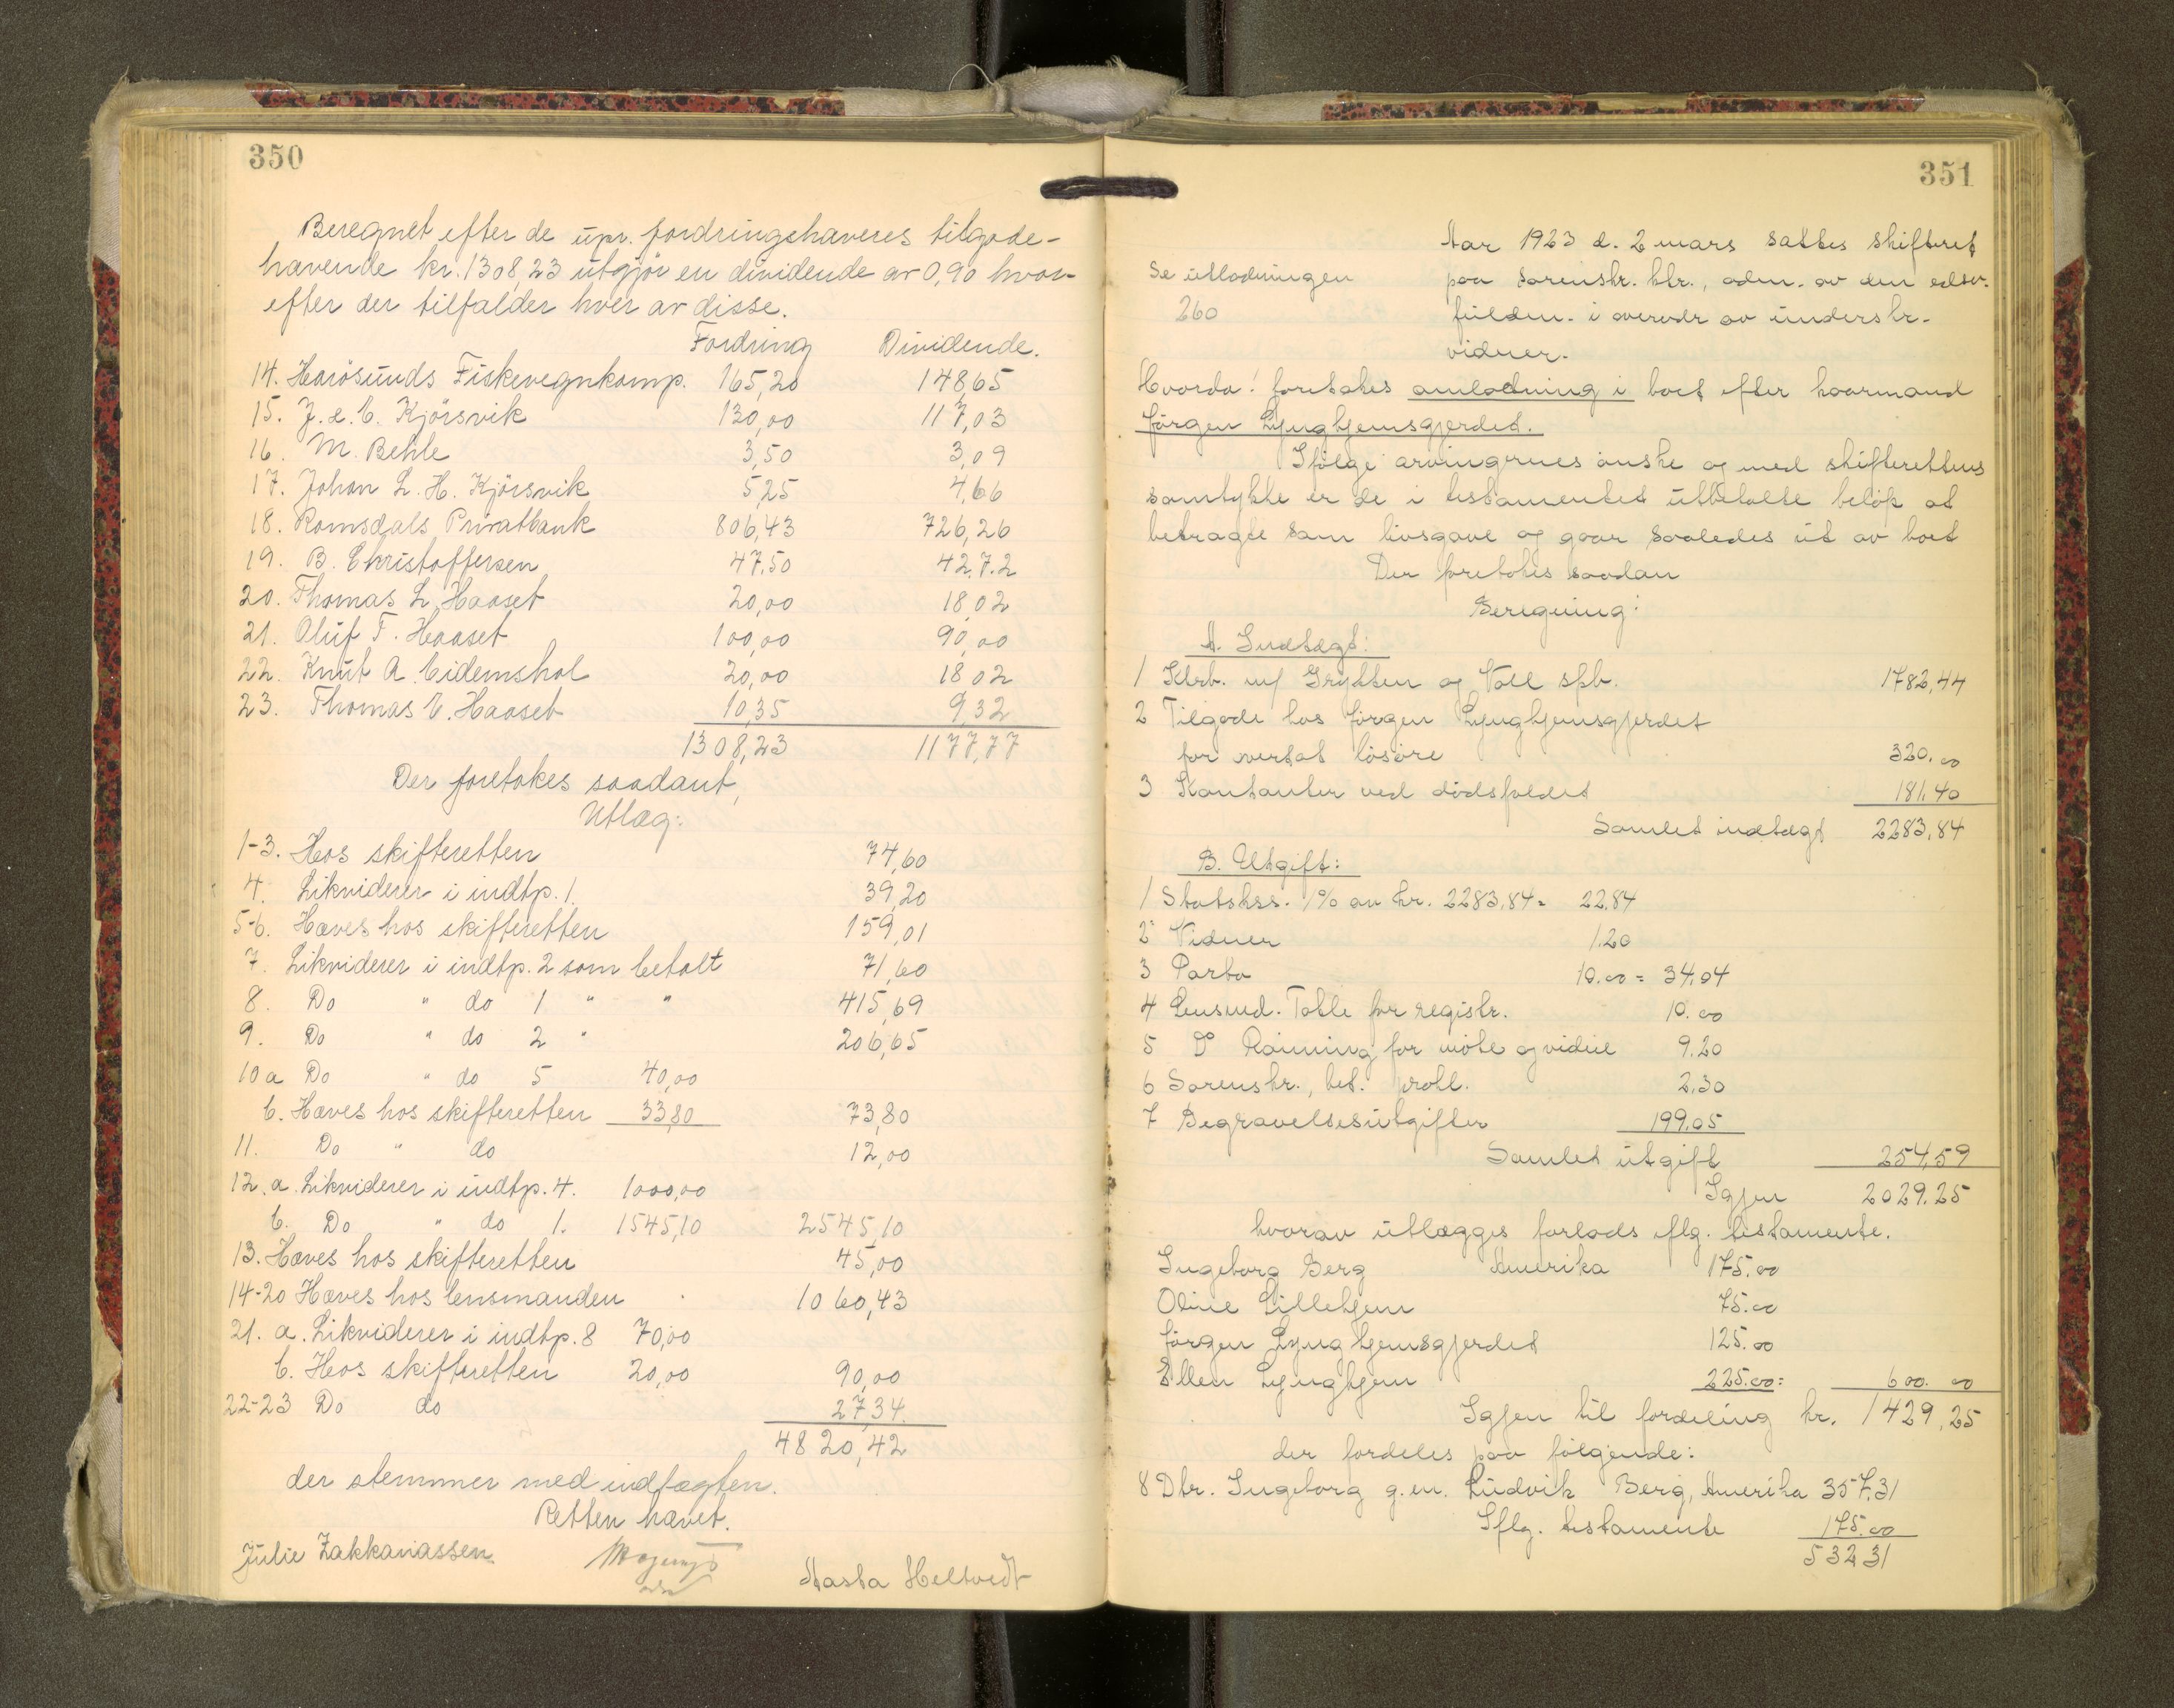 350
Beregnet efter de upr. fordringshaveres tilgode-
havende kr. 1308,23 utgjør en dividende av 0,90 hvor-
efter der tilfalder hver av disse.
Fordring Dividende.
14. Harøsunds Fiskevegnkomp. 165,20 148,65
15. J. E. Kjørsvik 130,00 117,03
16. M. Behle 3,50 3,09
17. Johan L. H. Kjørsvik 5,25 4,66
18. Romsdals Privatbank 806,43 726,26
19. B. Christoffersen 47.50 42.72
20. Thomas L. Haaset 20,00 18,02
21. Oluf T. Haaset 100,00 90,00
22. Knut A. Eidemshol 20,00 18 02
23. Thomas E. Haaset 10,35 9,32
1308,23 1177,77
Der foretokes saadant,
Utlæg:
1-3. Hos skifteretten 74,60
4. Likviderer i indtp. 1. 39,20
5-6. Hæves hos skifteretten 159,01
7. Likviderer i indtp. 2 som betalt 71,60
8. Do " do 1 " " 415,69
9. Do " do 2 " 206,65
10 a Do " do 5 40,00
b. Hæves hos skifteretten 33,80 73,80
11. Do " do 12,00
12. a. Likviderer i indtp. 4. 1000,00
b. Do " do 1. 1545,10 2545,10
13. Hæves hos skifteretten 45,00
14-20 Hæves hos lensmanden 1060,43
21. a. Likviderer i indtp. 8 70,00
b. Hos skifteretten 20,00 90,00
22-23 Do do 27,34.
4820,42
der stemmer med indtægten.
Retten hævet.
Julie Zakkariassen. Aasta Heltvedt
351
Aar 1923 d. 2 mars sattes skifteret
paa sorenskr. ktr., adm. av den edsv.
fuldm. i overvær av underskr.
vidner.
Se utlodningen
260
Hvorda! foretokes omlodning i boet efter kaarmand
Jørgen Lynghjemsgjerdet.
Ifølge arvingernes ønske og med skifterettens
samtykke er de i testamentet utbetalte beløp at
betragte som livsgave og gaar saaledes ut av boet
Der foretokes saadan
Beregning:
A. Indtægt:
1 Ktrb. m/ Grytten og Voll spb. 1782,44
2 Tilgode hos Jørgen Lynghjemsgjerdet
for overtat løsøre 320.00
3 Kontanter ved dødsfaldet 181.40
Samlet indtægt 2283,84
B. Utgift:
1 Statskss. 1% av kr. 2283,84 = 22.84
2 Vidner 1.20
3 Porto 10.00 = 34.04
4 Lensmd. Tokle for registr. 10.00
5 Do Rønning for møte og vidne 9.20
6 Sorenskr., bet. proll. 2.30
7 Begravelsesutgifter 199.05
Samlet utgift 254.59
Igjen 2029.25
hvorav utlægges forlods iflg. testamente.
Ingeborg Berg Amerika 175.00
Oline Lillehjem 75.00
Jørgen Lynghjemsgjerdet 125.00
Ellen Lynghjem 225.00 = 600.00
Igjen til fordeling kr. 1429,25
der fordeles paa følgende:
8 Dtr. Ingeborg g.m. Ludvik Berg, Amerika 357,31
Iflg. testamente 175.00
532 31